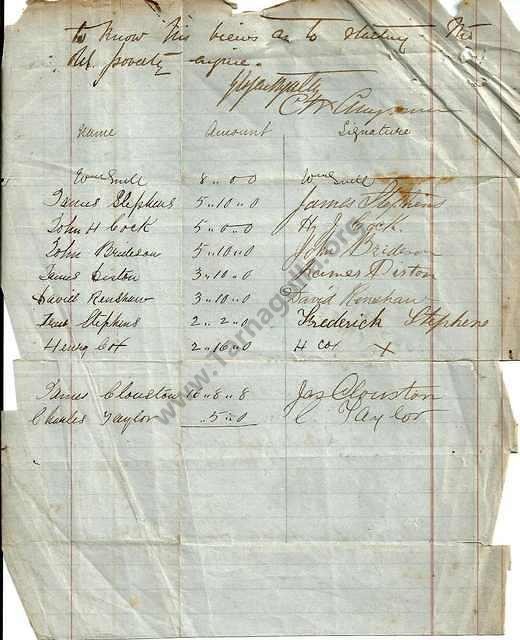 to know his views as to
poverty
Name Amount Signature
Wm Snell 8 .. 0 0 Wm Snell
James Stephens 5 .. 10 .. 0 James Stephens
John H Cock 5 .. 0 .. 0 Hy J Cock.
John Brideson 5 .. 10 .. 0 John Brideson
James Diston 3 .. 10 .. 0 James Diston
David Renshaw 3 .. 10 .. 0 David Renshaw
Fred Stephens 2 .. 2 .. 0 Frederick Stephens
Henry Cox 2 .. 16 .. 0 H Cox X
James Clouston 10 .. 8 .. 8 Jas Clouston
Charles Taylor .. 5 .. 0 C Taylor